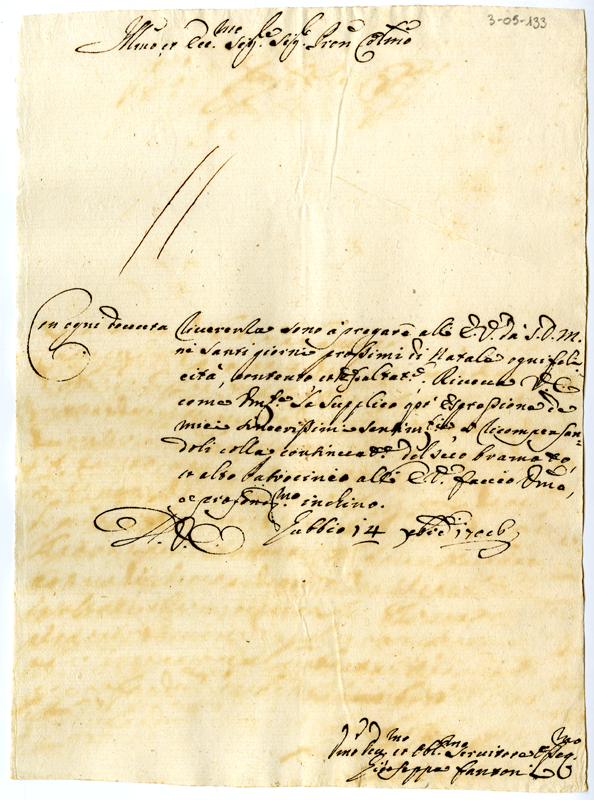 3-05-133
Illmo et Ecc.mo Sig.re Sig.re Pron Colmo
Con ogni dovuta riverenza sono a pregare alla E.V. da S.D.M.
ne Santi giorni prossimi di Natale ogni feli
cità, contento et esaltat.e. Riceva V.E.
come la supplico per espressione de
miei sincerissimi sentim.ti ricompensan
doli colla continuat.e del suo bramato,
et alto Patrocinio alla E.V. faccio
e profond.mo inchino.
D. V. E. Gubbio 14 Xbre
et Obl.mo Servitore
Giuseppe